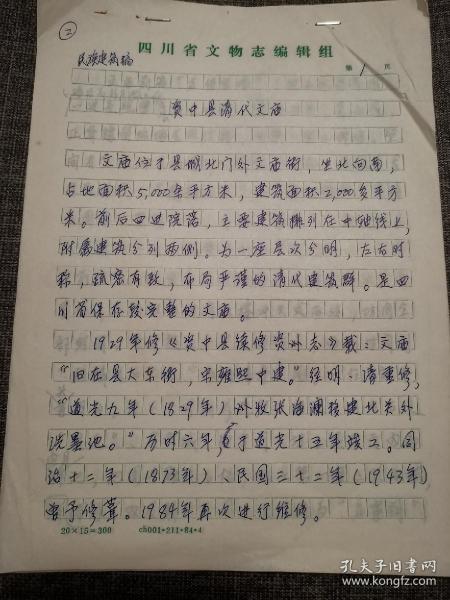 ②
四川省文物志编辑组
民族建筑稿
第 1 页
资中县清代文庙
文庙位于县城北门外文庙街，坐北向南，
占地面积5,000余平方米，建筑面积2,000多平方
米。前后四进院落，主要建筑排列在中轴线上，
附属建筑分列两侧。为一座层次分明，左右对
称，疏密有致，布局严谨的清代建筑群。是四
川省保存较完整的文庙。
1929年修《资中县续修资州志》载：文庙
“旧在县大东街，宋雍熙中建。”经明、清重修，
“道光九年（1829年）州牧张海澜移建北关外
洗墨池。”历时六年，于道光十五年竣工。同
治十二年（1873年）、民国三十二年（1943年）
曾予修葺。1984年再次进行维修。
20×15=300
ch001•211•84•4
孔夫子旧书网
www.kongfz.com